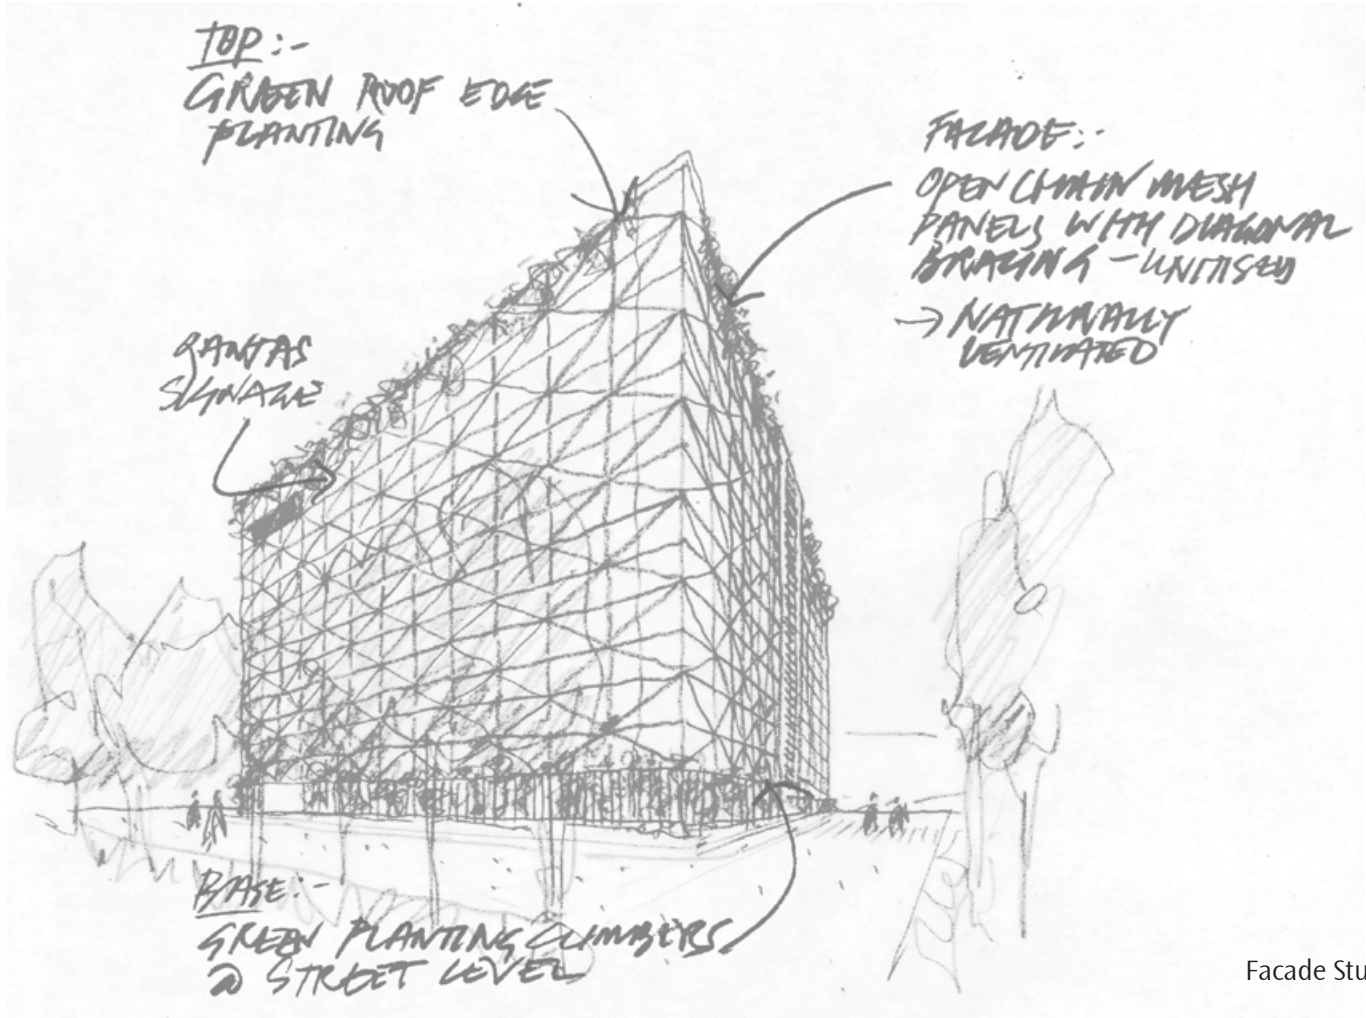 TOP:-
GREEN ROOF EDGE
PLANTING
FACADE:-
OPEN CHAIN MESH
PANELS WITH DIAGONAL
BRACING - UNITISED
→ NATURALLY
VENTILATED
QANTAS
SIGNAGE
BASE:-
GREEN PLANTING CLIMBERS
@ STREET LEVEL
Facade Stu